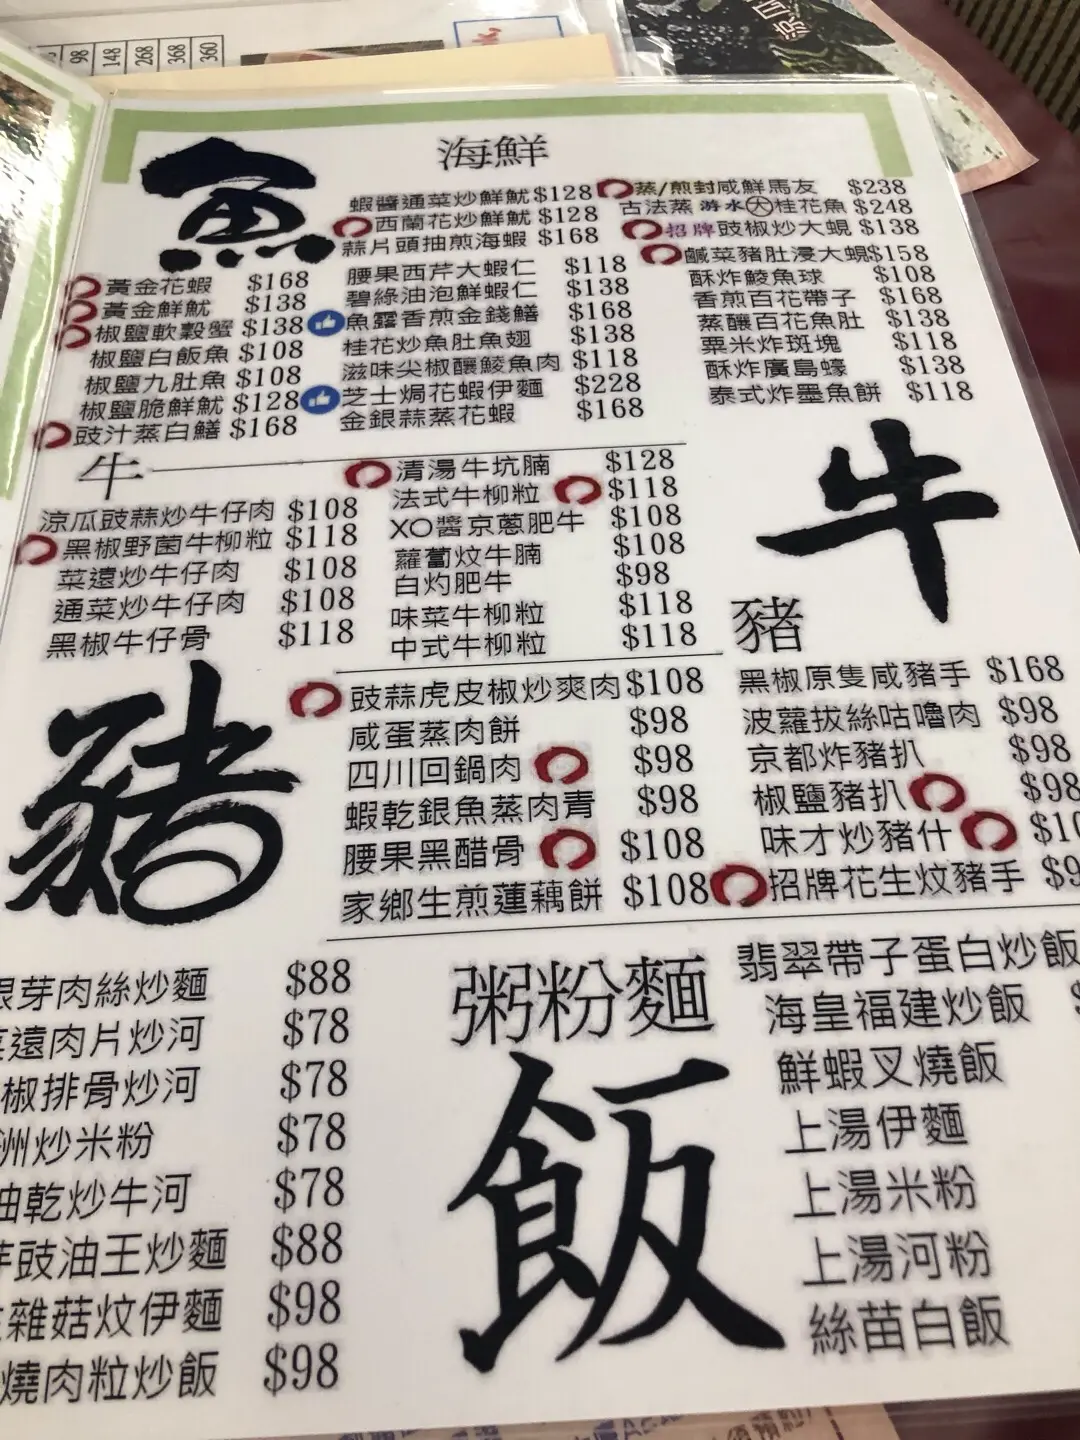 98
148
268
368
360
涼瓜
魚
海鮮
蝦醬通菜炒鮮魷 $128
西蘭花炒鮮魷 $128
蒜片頭抽煎海蝦 $168
黃金花蝦 $168
黃金鮮魷 $138
椒鹽軟殼蟹 $138
椒鹽白飯魚 $108
椒鹽九肚魚 $108
椒鹽脆鮮魷 $128
豉汁蒸白鱔 $168
腰果西芹大蝦仁 $118
碧綠油泡鮮蝦仁 $138
魚露香煎金錢鱔 $168
桂花炒魚肚魚翅 $138
滋味尖椒釀鯪魚肉 $118
芝士焗花蝦伊麵 $228
金銀蒜蒸花蝦 $168
蒸/煎封咸鮮馬友 $238
古法蒸游水大桂花魚 $248
招牌豉椒炒大蜆 $138
鹹菜豬肚浸大蜆 $158
酥炸鯪魚球 $108
香煎百花帶子 $168
蒸釀百花魚肚 $138
粟米炸斑塊 $118
酥炸廣島蠔 $138
泰式炸墨魚餅 $118
牛
涼瓜豉蒜炒牛仔肉 $108
黑椒野菌牛柳粒 $118
菜遠炒牛仔肉 $108
通菜炒牛仔肉 $108
黑椒牛仔骨 $118
清湯牛坑腩 $128
法式牛柳粒 $118
XO醬京蔥肥牛 $108
蘿蔔炆牛腩 $108
白灼肥牛 $98
味菜牛柳粒 $118
中式牛柳粒 $118
牛
豬
豬
豉蒜虎皮椒炒爽肉 $108
咸蛋蒸肉餅 $98
四川回鍋肉 $98
蝦乾銀魚蒸肉青 $98
腰果黑醋骨 $108
家鄉生煎蓮藕餅 $108
黑椒原隻咸豬手 $168
波蘿拔絲咕嚕肉 $98
京都炸豬扒 $98
椒鹽豬扒 $98
味才炒豬什 $10
招牌花生炆豬手 $9
粥粉麵
飯
芽肉絲炒麵 $88
遠肉片炒河 $78
椒排骨炒河 $78
洲炒米粉 $78
乾炒牛河 $78
豉油王炒麵 $88
雜菇炆伊麵 $98
燒肉粒炒飯 $98
翡翠帶子蛋白炒飯
海皇福建炒飯 $
鮮蝦叉燒飯
上湯伊麵
上湯米粉
上湯河粉
絲苗白飯